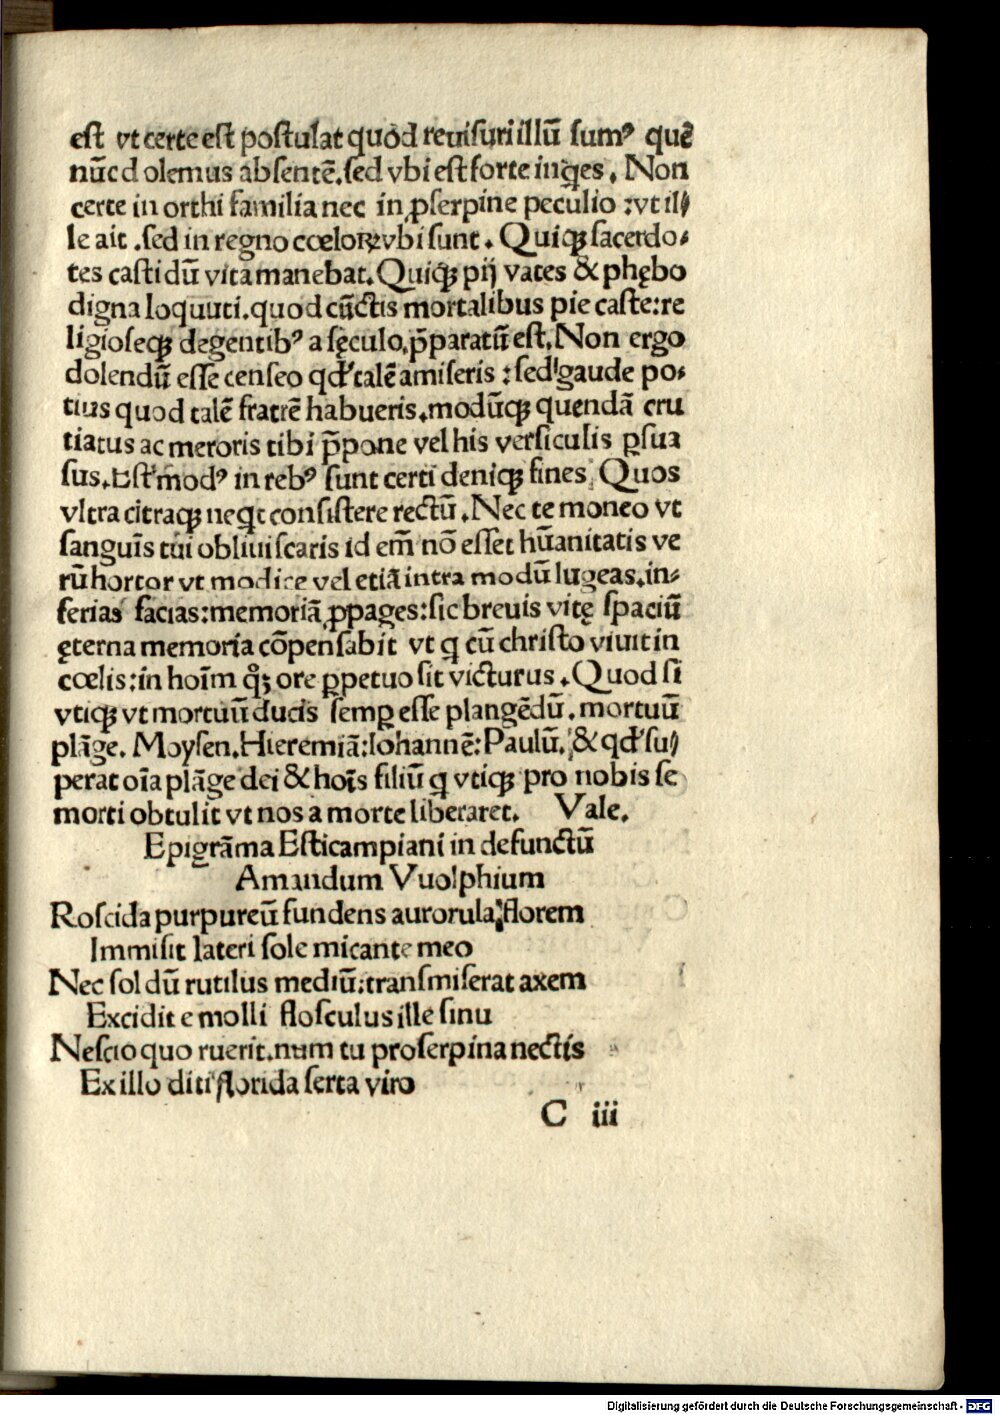 est vt certe est postulat quod reuisuri illū sumꝰ quē
nūc dolemus absentē. sed vbi est forte inq̄es. Non
certe in orthi familia nec in ꝓserpine peculio : vt il/
le ait . sed in regno cœloꝝ vbi sunt. Quiqꝫ sacerdo-
tes casti dū vita manebat. Quiqꝫ pij vates & phębo
digna loquuti. quod cūctis mortalibus pie caste: re
ligioseqꝫ degentibꝰ a sęculo, p̄paratū est. Non ergo
dolendū esse censeo qđ talē amiseris : sed gaude po-
tius quod talē fratrē habueris. modūqꝫ quendā cru
tiatus ac meroris tibi p̄pone vel his versiculis ꝑsua
sus. Est modꝰ in rebꝰ sunt certi deniqꝫ fines. Quos
vltra citraqꝫ neqt consistere rectū. Nec te moneo vt
sanguīs tui obliuiscaris id em̄ nō esset hūanitatis ve
rū hortor vt modice vel etiā intra modū lugeas. in-
ferias facias: memoriā ꝓpages: sic breuis vitę spaciū
ęterna memoria cōpensabit vt q cū christo viuit in
cœlis: in hoīm qͦꝫ ore ꝑpetuo sit victurus . Quod si
vtiqꝫ vt mortuū ducis semꝑ esse plangēdū. mortuū
plāge. Moysen. Hieremiā: Iohannē: Paulū. & qđ su/
perat oīa plāge dei & hoīs filiū q vtiqꝫ pro nobis se
morti obtulit vt nos a morte liberaret. Vale.
Epigrāma Esticampiani in defunctū
Amandum Vuolphium
Roscida purpureū fundens aurorula florem
Immisit lateri sole micante meo
Nec sol dū rutilus mediū: transmiserat axem
Excidit e molli flosculus ille sinu
Nescio quo ruerit. num tu proserpina nectis
Ex illo diti florida serta viro
C iii
Digitalisierung gefördert durch die Deutsche Forschungsgemeinschaft - DFG